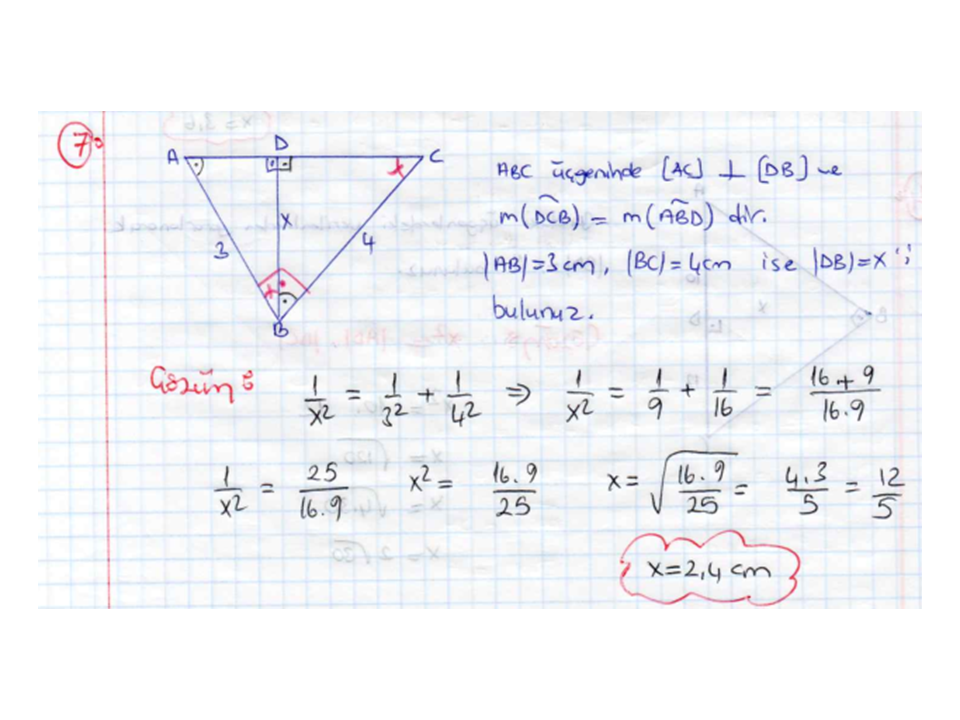 7:
A D C
x
3 4
B
ABC üçgeninde [AC] ⊥ [DB] ve
m(DCB) = m(ABD) dir.
|AB|=3cm, |BC|=4cm ise |DB|=x 'i
bulunuz.
Çözüm:
1/x² = 1/3² + 1/4² ⇒ 1/x² = 1/9 + 1/16 = 16+9/16.9
1/x² = 25/16.9 x² = 16.9/25 x = √16.9/25 = 4.3/5 = 12/5
x=2,4 cm